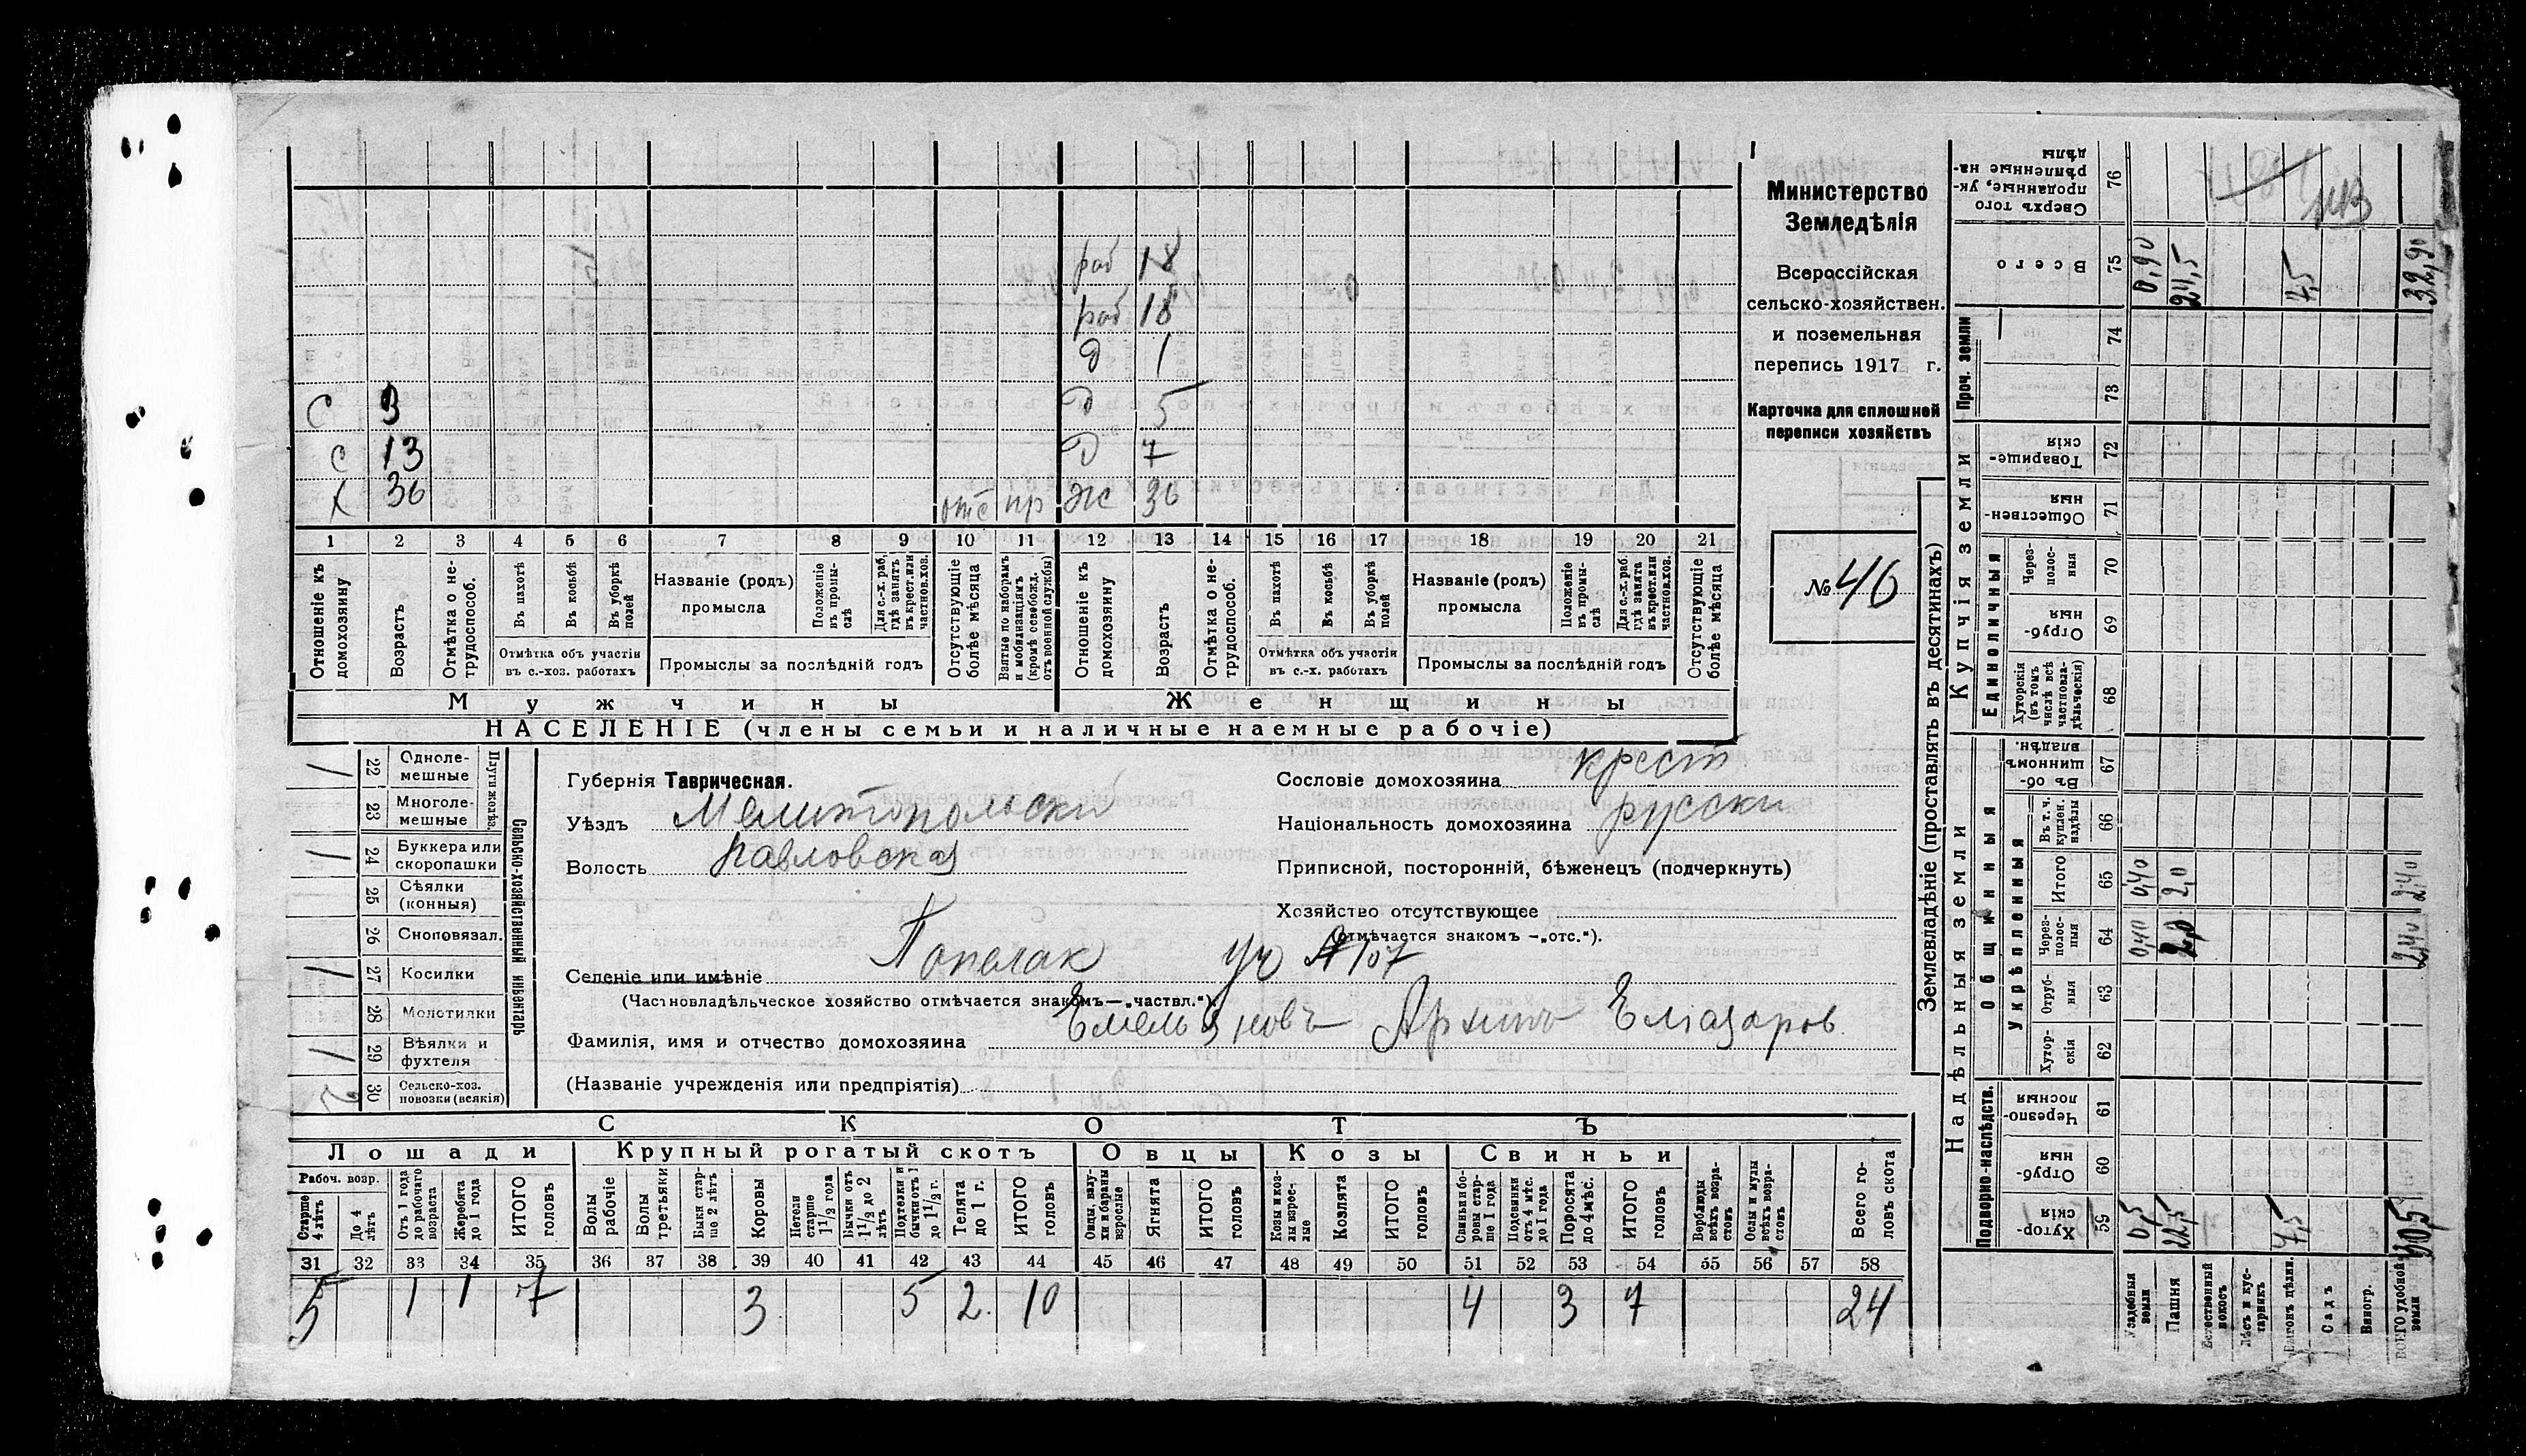 раб 18
раб 18
д 1
С 9 Д 5
с 13 Д 7
х 36 отс пр Ж 36
1 2 3 4 5 6 7 8 9 10 11 12 13 14 15 16 17 18 19 20 21
Отношеніе къ домохозяину
Возрастъ
Отмѣтка о не-трудоспособ.
Въ пахотѣ
Въ косьбѣ
Въ уборкѣ полей
Отмѣтка объ участіи въ с.-хоз. работахъ
Названіе (родъ) промысла
Положеніе въ промы-слѣ
Для с.-х. раб. гдѣ занятъ въ крест. или частнов. хоз.
Промыслы за послѣдній годъ
Отсутствующіе болѣе мѣсяца
Взятые по наборамъ и мобилизаціямъ (кромѣ освобожд. отъ военной службы)
Отношеніе къ домохозяину
Возрастъ
Отмѣтка о не-трудоспособ.
Въ пахотѣ
Въ косьбѣ
Въ уборкѣ полей
Отмѣтка объ участіи въ с.-х. работахъ
Названіе (родъ) промысла
Положеніе въ промы-слѣ
Для с.-х. раб. гдѣ занята въ крест. или частнов. хоз.
Промыслы за послѣдній годъ
Отсутствующіе болѣе мѣсяца
Мужчины Женщины
НАСЕЛЕНІЕ (члены семьи и наличные наемные рабочіе)
Министерство
Земледѣлія
Всероссійская
сельско-хозяйствен.
и поземельная
перепись 1917 г.
Карточка для сплошной
переписи хозяйствъ
№ 46
Сельско-хозяйственный инвентарь
Плуги желѣз.
/ 22 Одноле-мешные
23 Многоле-мешные
/ 24 Буккера или скоропашки
25 Сѣялки (конныя)
26 Сноповязал.
/ 27 Косилки
28 Молотилки
/ 29 Вѣялки и фухтеля
2 30 Сельско-хоз. повозки (всякія)
Губернія Таврическая.
Уѣздъ Мелитопольскій
Волость Павловская
Сословіе домохозяина крест
Національность домохозяина русски
Приписной, посторонній, бѣженецъ (подчеркнуть)
Хозяйство отсутствующее
(отмѣчается знакомъ —„отс.“).
Селеніе или имѣніе Попелак уч № 107
(Частновладѣльческое хозяйство отмѣчается знакомъ—„частвл.“).
Фамилія, имя и отчество домохозяина Емельяновъ Архипъ Елиазаров
(Названіе учрежденія или предпріятія)
СКОТЪ
Лошади Крупный рогатый скотъ Овцы Козы Свиньи
Рабоч. возр.
Старше 4 лѣтъ
До 4 лѣтъ
Отъ 1 года до рабочаго возраста
Жеребята до 1 года
ИТОГО головъ
Волы рабочіе
Волы третьяки
Быки стар-ше 2 лѣтъ
Коровы
Нетели старше 1 1/2 года
Бычки отъ 1 1/2 до 2 лѣтъ
Подтелки и бычки отъ 1 до 1 1/2 г.
Телята до 1 г.
ИТОГО головъ
Овцы, валу-хи и бараны взрослые
Ягнята
ИТОГО головъ
Козы и коз-лы взрос-лые
Козлята
ИТОГО головъ
Свиньи и бо-ровы стар-ше 1 года
Подсвинки отъ 4 мѣс. до 1 года
Поросята до 4 мѣс.
ИТОГО головъ
Верблюды всѣхъ возра-стовъ
Ослы и мулы всѣхъ возра-стовъ
Всего го-ловъ скота
31 32 33 34 35 36 37 38 39 40 41 42 43 44 45 46 47 48 49 50 51 52 53 54 55 56 57 58
5 1 1 7 3 5 2 10 4 3 7 24
Землевладѣніе (проставлять въ десятинахъ)
Надѣльныя земли
Купчія земли
Проч. земли
Подворно-наслѣдств.
Общинныя
Укрѣпленныя
Единоличныя
Сверхъ того проданные, ук-рѣпленные на-дѣлы 76
Всего 75 0,90 24,5 7,5 32,90
74
73
Товарище-скія 72
Обществен-ныя 71
Через-полос-ныя 70
Отруб-ныя 69
Хуторскія (въ томъ числѣ всѣ частновла-дѣльческія) 68
Въ об-щинномъ владѣн. 67
Въ т. ч. куплен. надѣлы 66
Итого 65 0,40 2,0 2,40
Через-полос-ныя 64 0,40 2,0 2,40
Отруб-ныя 63
Хутор-скія 62
Черезпо-лосныя 61
Отруб-ныя 60
Хутор-скія 59 0,5 22,5 7,5 30,5
Усадебныя земли
Пашня
Естественный покосъ
Лѣсъ и кус-тарникъ
Выгонъ цѣлин.
Садъ
Виногр.
ВСЕГО удобной земли